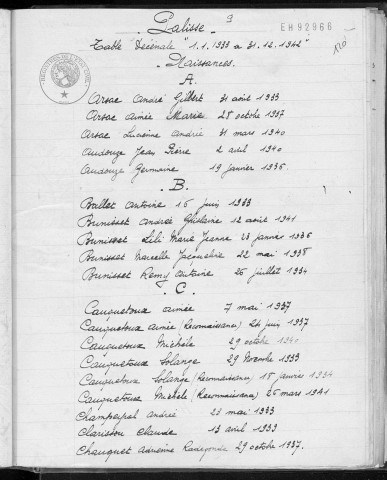 9
EH92966
Lalisse.
Table Décénale "1.1.1933 a 31.12.1942"
Naissances.
A.
Arsac André Gilbert 31 août 1933
Arsac Aimée Marie 28 octobre 1937
Arsac Lucienne Andrée 31 mars 1940
Audouze Jean Pierre 2 avril 1940
Audouze Germaine 19 janvier 1936.
B.
Ballet Antoine 16 juin 1933
Brunisset Andrée Ghislaine 12 août 1941
Brunisset Lili Marie Jeanne 23 janvier 1936
Brunisset Marcelle Jacqueline 22 mai 1938
Brunisset Remy Antoine 26 juillet 1934
C.
Cauquetoux Aimée 7 mai 1937
Cauquetoux Aimée (Reconnaissance) 24 juin 1937
Cauquetoux Michèle 29 octobre 1940
Cauquetoux Solange 29 Novembre 1933
Cauquetoux Solange (Reconnaissance) 18 janvier 1934
Cauquetoux Michèl (Reconnaissance) 26 mars 1941
Champeyrol André 23 mai 1933
Clarisson Claude 13 avril 1933
Chauquet Adrienne Radegonde 29 octobre 1937.